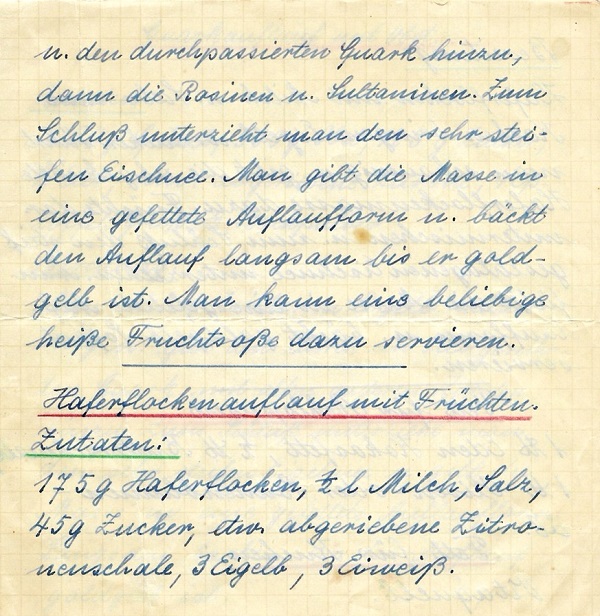 u. den durchpassierten Quark hinzu,
dann die Rosinen u. Sultaninen. Zum
Schluß unterzieht man den sehr stei-
fen Eischnee. Man gibt die Masse in
eine gefettete Auflaufform u. bäckt
den Auflauf langsam bis er gold-
gelb ist. Man kann eine beliebige
heiße Fruchtsoße dazu servieren.
Haferflockenauflauf mit Früchten.
Zutaten:
175 g Haferflocken, ½ l Milch, Salz,
45 g Zucker, etw. abgeriebene Zitro-
nenschale, 3 Eigelb, 3 Eiweiß.